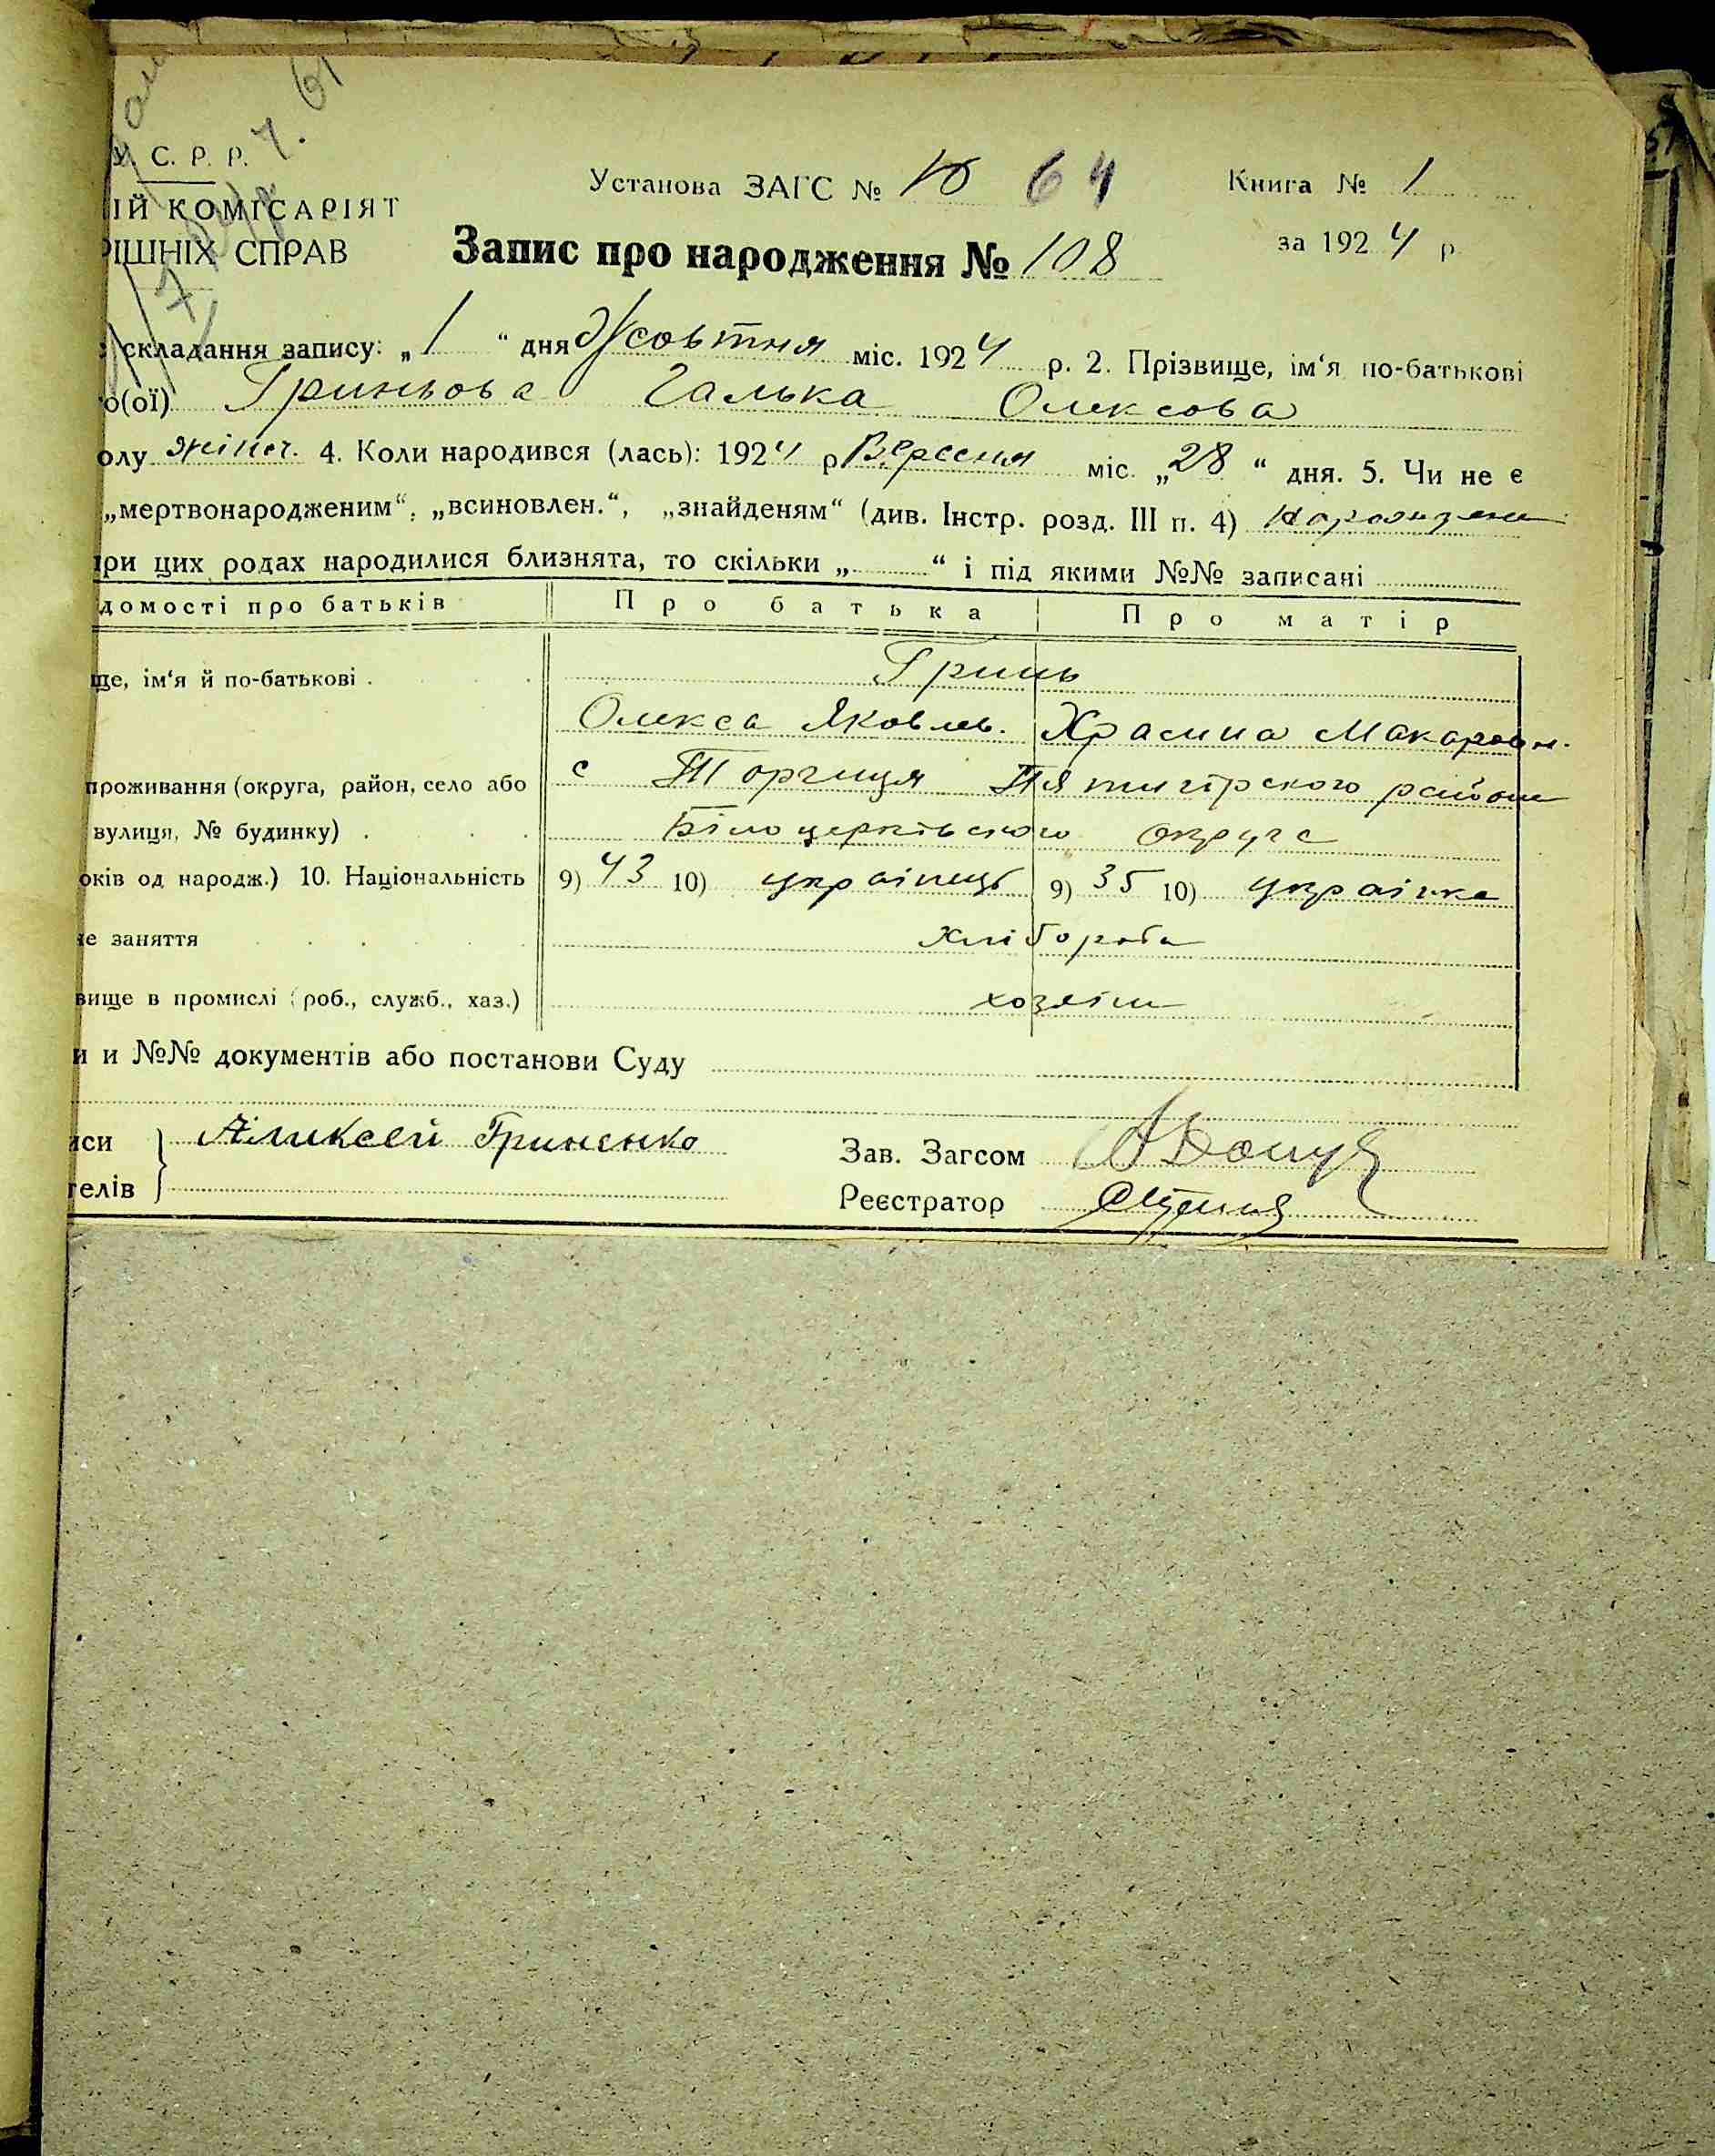 У. С. Р. Р.
ІЙ КОМІСАРІЯТ
РІШНІХ СПРАВ
Установа ЗАГС № 10 64 Книга № 1
Запис про народження № 108 за 1924 р.
складання запису: „1“ дня Жовтня міс. 1924 р. 2. Прізвище, ім‘я по-батькові
о(ої) Гриньова Галька Олексова
олу жіноч. 4. Коли народився (лась): 1924 р Вересня міс. „28“ дня. 5. Чи не є
„мертвонародженим“, „всиновлен.“, „знайденям“ (див. Інстр. розд. III п. 4)
ри цих родах народилися близнята, то скільки „ “ і під якими №№ записані
домості про батьків Про батька Про матір
ще, ім‘я й по-батькові . Гринь
Олекса Яковлев. Макаров.
проживання (округа, район, село або с Торчиця Пятигірского района
вулиця, № будинку) . . . Білоцерківського округа
оків од народж.) 10. Національність 9) 43 10) українець 9) 35 10) українка
не заняття хлібороби
вище в промислі (роб., служб., хаз.) хозяїни
и и №№ документів або постанови Суду
иси Аликсей Гриненко Зав. Загсом
телів Реєстратор